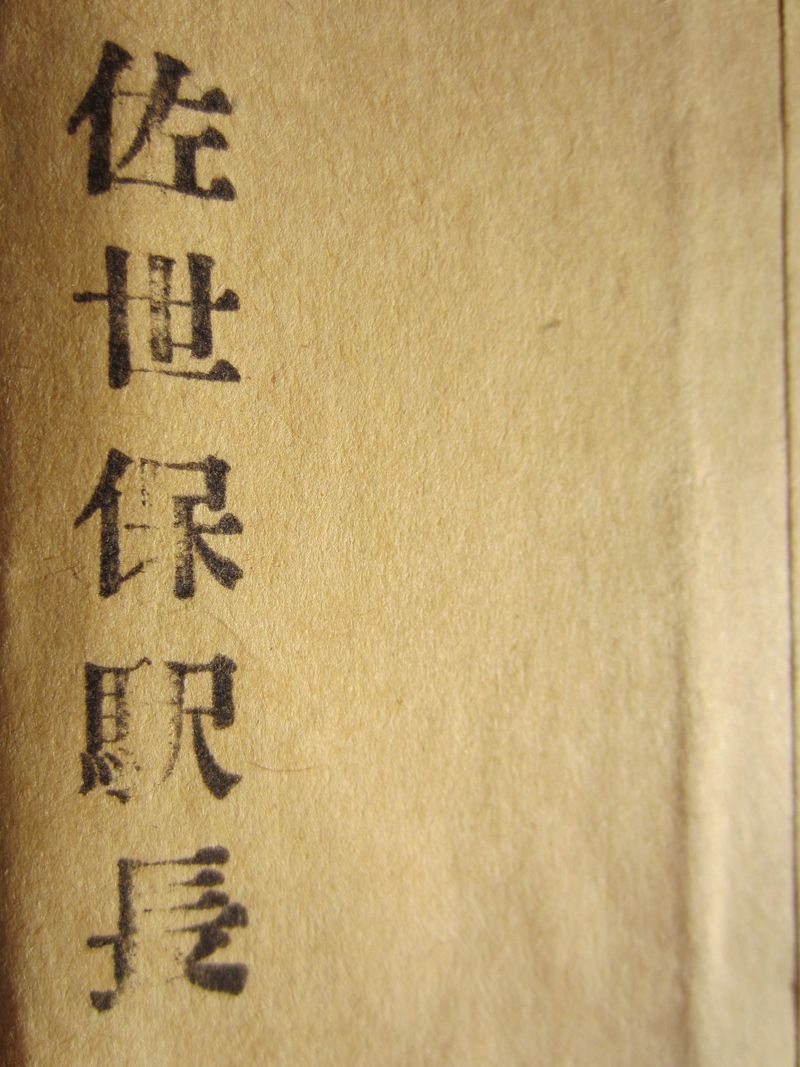 佐世保駅長